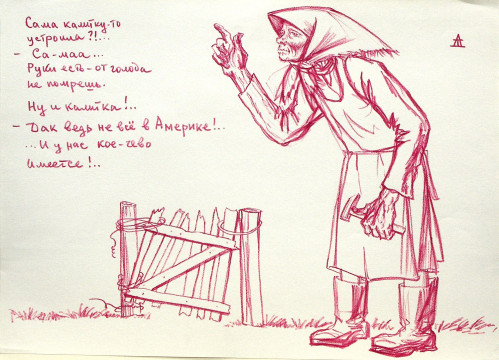 Сама калитку-то
устроила?!...
- Са-маа...
Руки есть - от голода
не помрешь.
Ну и калитка!..
- Дак ведь не всё в Америке!..
...И у нас кое-чево
имеется!..